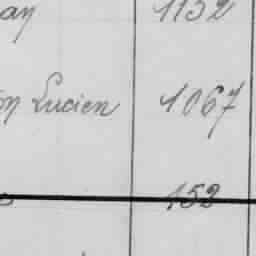 ay 1132
on Lucien 1067
152